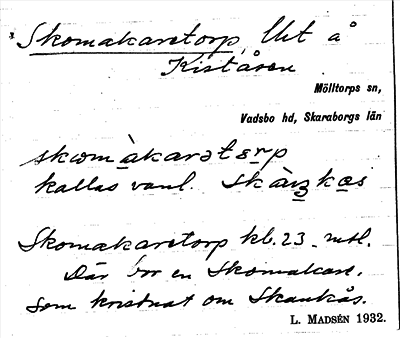 Skomakaretorp, lht å
Kiståsen
Mölltorps sn,
Vadsbo hd, Skaraborgs län
skωmàkarətɛrp
kallas vanl.
Skomakaretorp kb. 23 mtl.
Där bor en Skomakare,
som kristnat om Skaukås.
L. MADSÉN 1932.